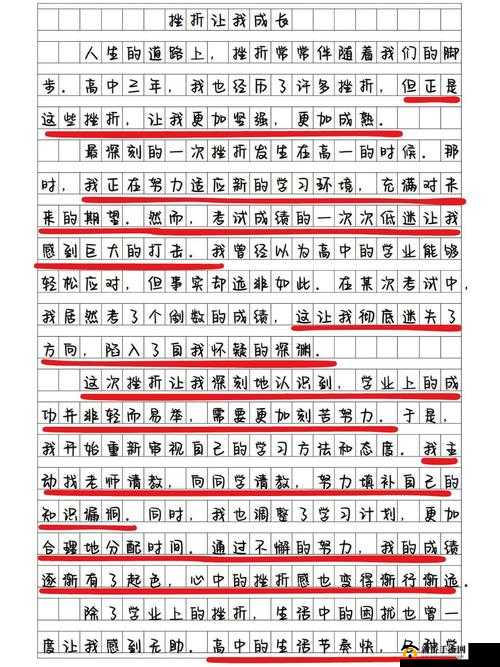 挫折让我成长
人生的道路上，挫折常常伴随着我们的脚
步．高中三年，我也经历了许多挫折，但正是
这些挫折，让我更加坚强，更加成熟．
最深刻的一次挫折发生在高一的时候．那
时，我正在努力适应新的学习环境，充满对未
来的期望．然而，考试成绩的一次次低迷让我
感到巨大的打击．我曾经以为高中的学业能够
轻松应对，但事实却远非如此．在某次考试中，
我居然考了个倒数的成绩，这让我彻底迷失了
方向，陷入了自我怀疑的深渊．
这次挫折让我深刻地认识到，学业上的成
功并非轻而易举，需要更加刻苦努力．于是，
我开始重新审视自己的学习方法和态度．我主
动找老师请教，向同学请教，努力填补自己的
知识漏洞．同时，我也调整了学习计划，更加
合理地分配时间．通过不懈的努力，我的成绩
逐渐有了起色，心中的挫折感也变得渐行渐远．
除了学业上的挫折，生活中的困扰也曾一
度让我感到无助．高中的生活节奏快，各种学